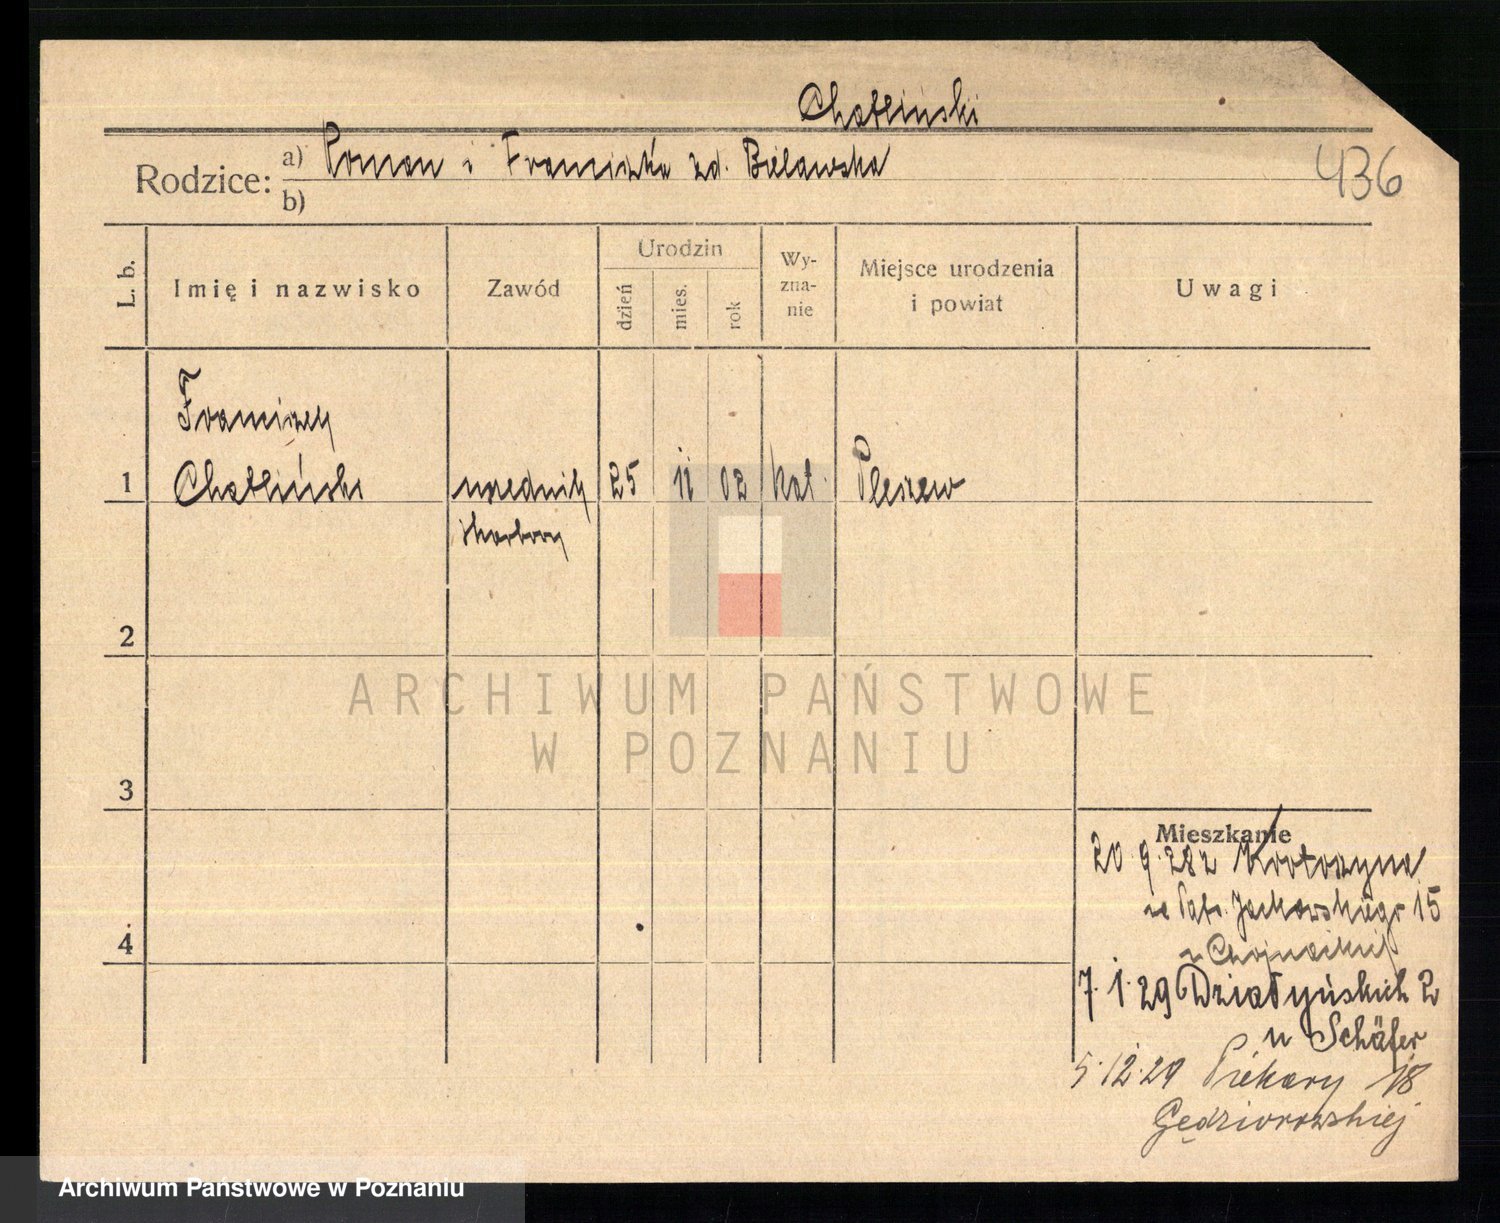 Chabliński
Rodzice: a) Roman i Franciszka zd. Bielawska
b)
436
L. b.
Imię i nazwisko
Zawód
Urodzin
dzień
mies.
rok
Wy-
zna-
nie
Miejsce urodzenia
i powiat
Uwagi
Franciszek
1 Chabliński urzędnik 25 11 02 kat. Pleszew
skarbowy
2
ARCHIWUM PAŃSTWOWE
W POZNANIU
3
Mieszkanie
20.9.28 z Krotoszyna
Jackowskiego 15
u Chojnackiej
4
7.1.29 Działyńskich 2
u Schäfer
5.12.29 Piekary 18
Gędziorowskiej
Archiwum Państwowe w Poznaniu